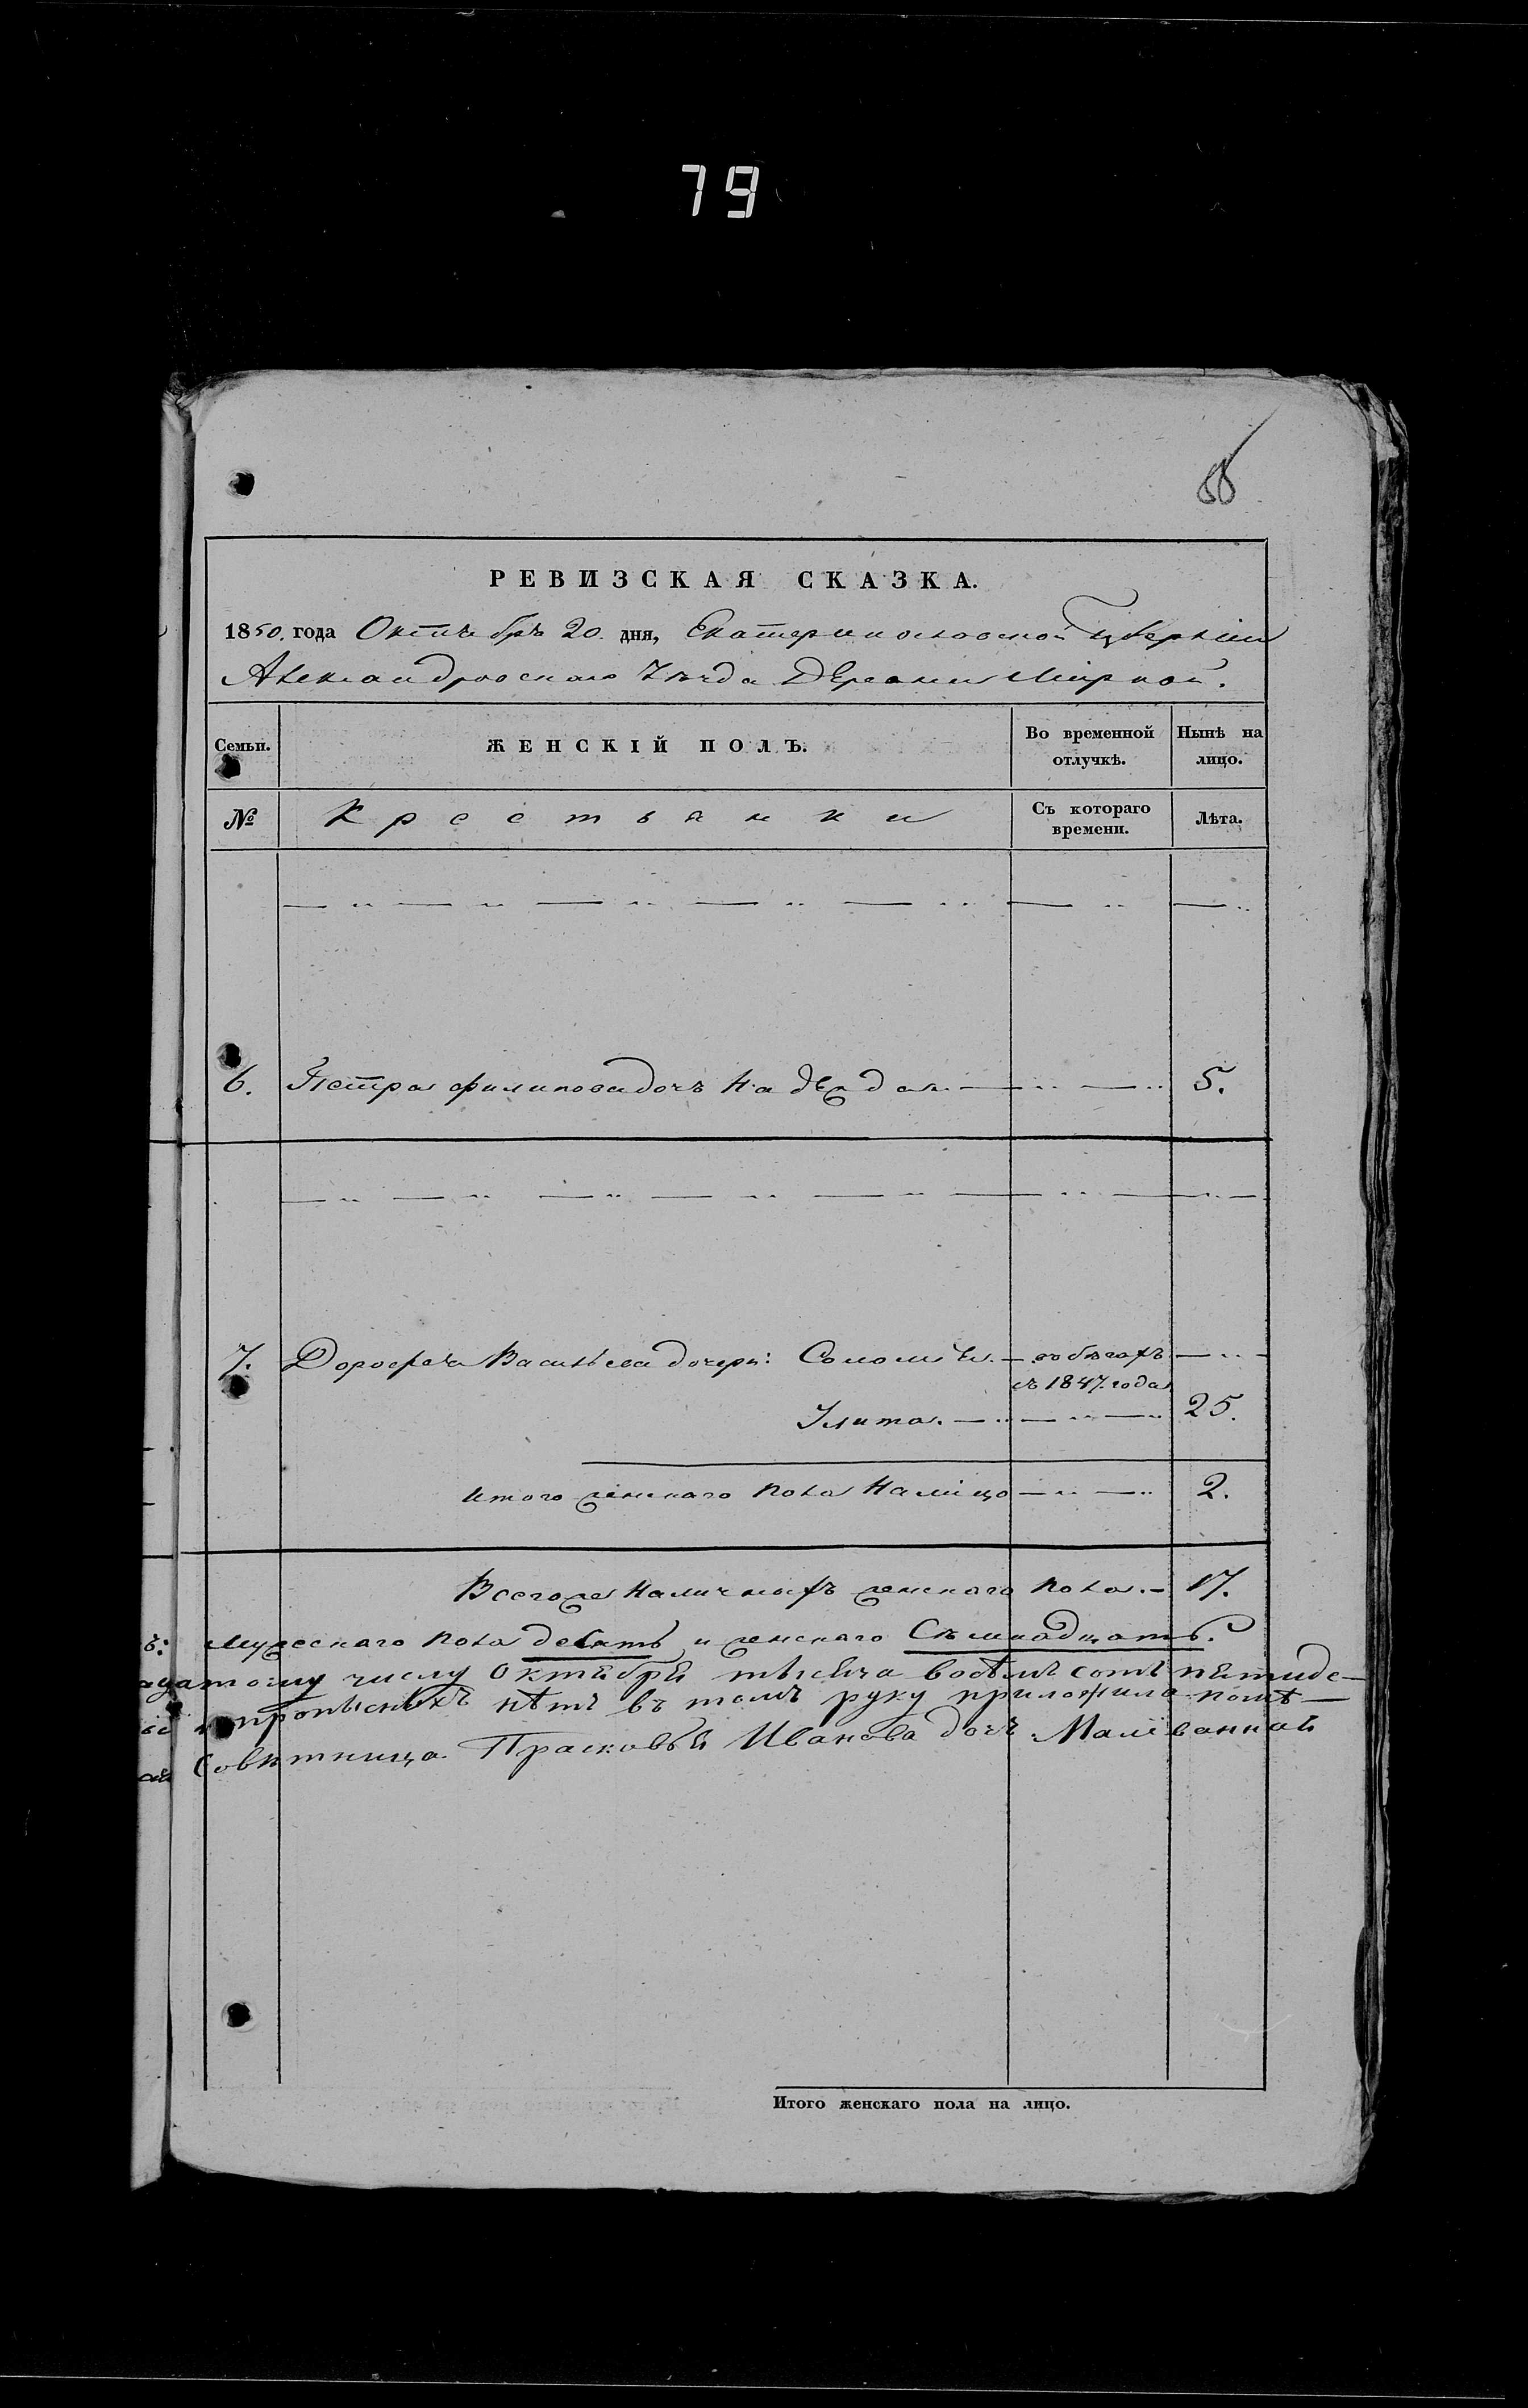 79
РЕВИЗСКАЯ СКАЗКА.
1850. года Октября 20. дня, Екатеринославской Губерніи
Александровскаго Уѣзда Деревни Мирной.
Семьи. ЖЕНСКІЙ ПОЛЪ. Во временной отлучкѣ. Нынѣ на лицо.
№ Крестьянки Съ котораго времени. Лѣта.
6. Петра Филипова дочь Надежда. 5.
7. Дорофея Васильева дочери: Соломѣя. въ бѣгахъ
съ 1847. года
Улита. 25.
Итого женскаго пола Налицо 2.
Всего же Наличныхъ женскаго пола. 17.
Мужескаго пола десять и женскаго Семнадцать.
числу Октября тысяча восемь сотъ пятиде-
прописныхъ нѣтъ въ томъ руку приложила помѣ-
Совѣтница Прасковья Иванова дочь Малеванная
Итого женскаго пола на лицо.